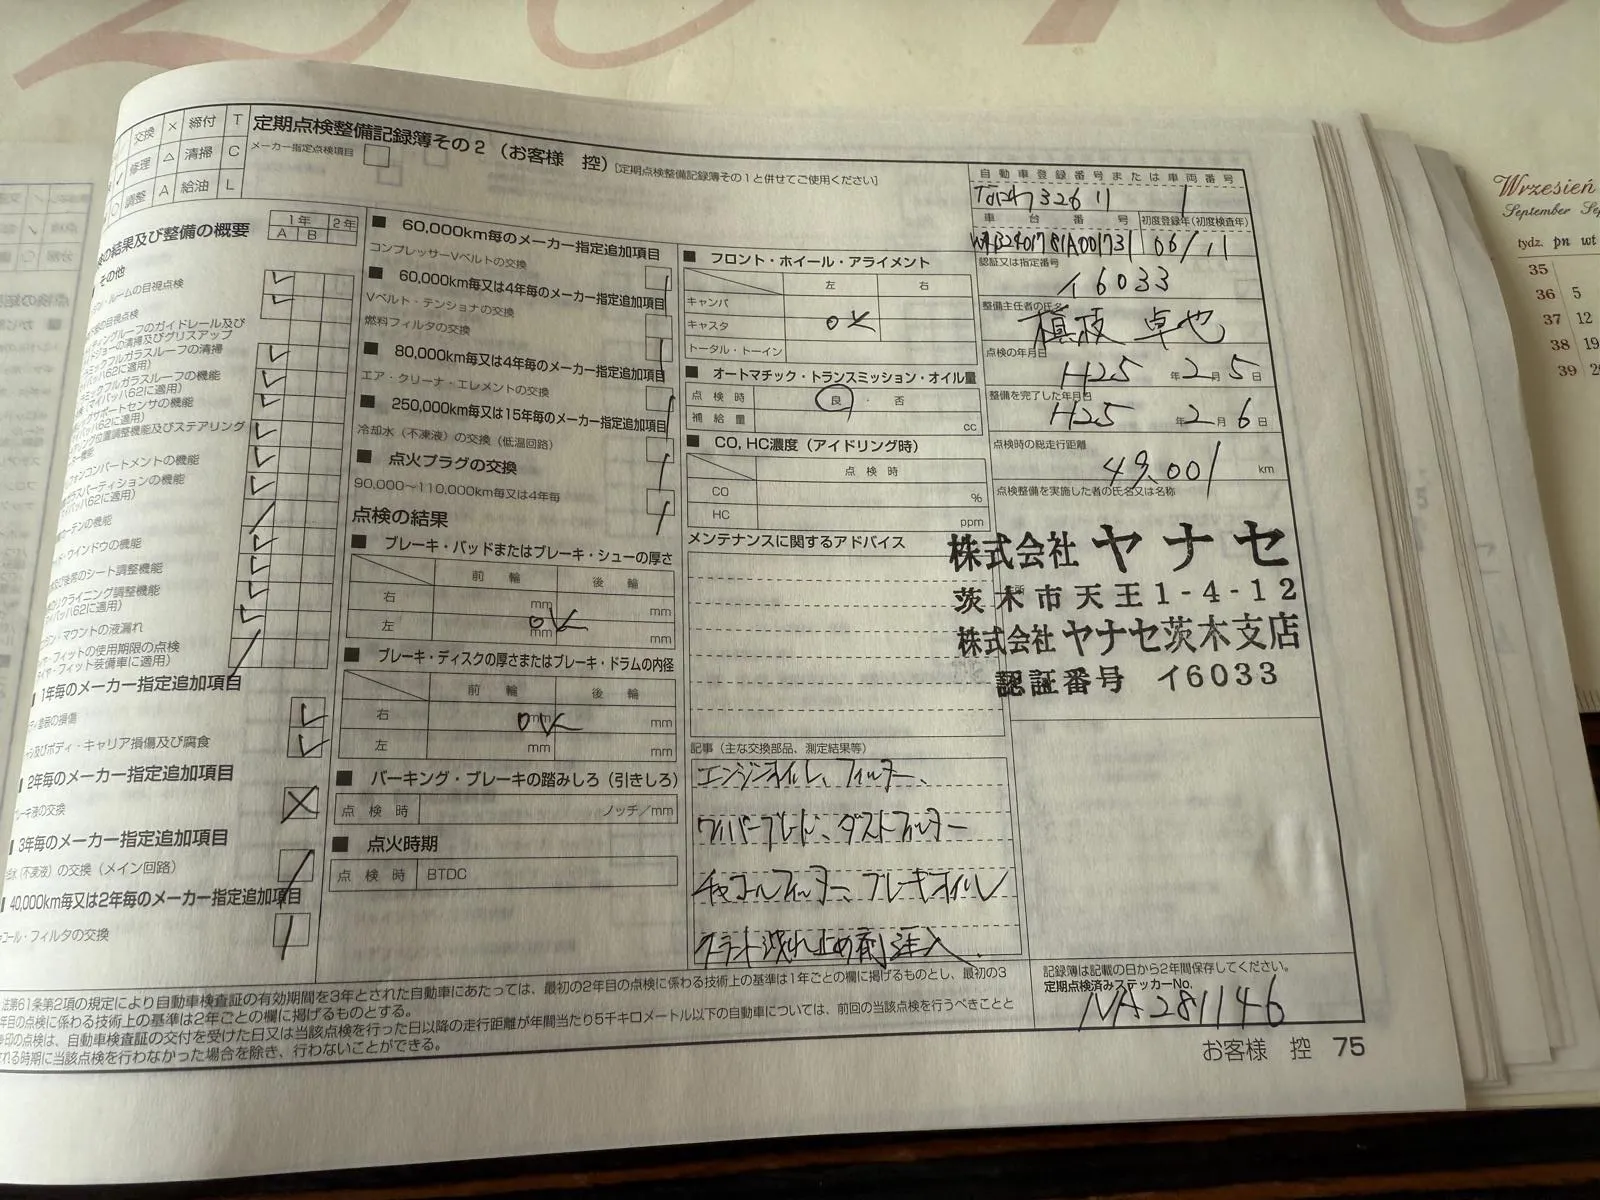 交換 × 締付 T
修理 △ 清掃 C
調整 A 給油 L
定期点検整備記録簿その2（お客様　控）［定期点検整備記録簿その1と併せてご使用ください］
メーカー指定点検項目
の結果及び整備の概要
1年 2年
A B
その他
ルームの目視点検
の目視点検
ィングルーフのガイドレール及び
ジョーの清掃及びグリスアップ
ミックフルガラスルーフの清掃
イバッハ62に適用）
ミックフルガラスルーフの機能
マイバッハ62に適用）
サポートセンサの機能
イバッハ62に適用）
ング位置調整機能及びステアリング
ー機能
ォンコンパートメントの機能
ガラスパーティションの機能
イバッハ62に適用）
カーテンの機能
ド・ウインドウの機能
及び後席のシート調整機能
のリクライニング調整機能
イバッハ62に適用）
ジン・マウントの液漏れ
ヤ・フィットの使用期限の点検
タイヤ・フィット装備車に適用）
1年毎のメーカー指定追加項目
ディ塗装の損傷
シ及びボディ・キャリア損傷及び腐食
2年毎のメーカー指定追加項目
ブレーキ液の交換
3年毎のメーカー指定追加項目
却水（不凍液）の交換（メイン回路）
40,000km毎又は2年毎のメーカー指定追加項目
コール・フィルタの交換
■ 60,000km毎のメーカー指定追加項目
コンプレッサーVベルトの交換
■ 60,000km毎又は4年毎のメーカー指定追加項目
Vベルト・テンショナの交換
燃料フィルタの交換
■ 80,000km毎又は4年毎のメーカー指定追加項目
エア・クリーナ・エレメントの交換
■ 250,000km毎又は15年毎のメーカー指定追加項目
冷却水（不凍液）の交換（低温回路）
■ 点火プラグの交換
90,000～110,000km毎又は4年毎
点検の結果
■ ブレーキ・パッドまたはブレーキ・シューの厚さ
前輪 後輪
右 mm mm
左 OK mm mm
■ ブレーキ・ディスクの厚さまたはブレーキ・ドラムの内径
前輪 後輪
右 OK mm mm
左 mm mm
■ パーキング・ブレーキの踏みしろ（引きしろ）
点検時 ノッチ／mm
■ 点火時期
点検時 BTDC
■ フロント・ホイール・アライメント
左 右
キャンバ
キャスタ OK
トータル・トーイン
■ オートマチック・トランスミッション・オイル量
点検時 良・否
補給量 cc
■ CO, HC濃度（アイドリング時）
点検時
CO %
HC ppm
メンテナンスに関するアドバイス
記事（主な交換部品、測定結果等）
エンジンオイル、フィルター、
ワイパーブレード、ダストフィルター
チャコールフィルター、ブレーキオイル
クーラント洩れ止め剤注入
自動車登録番号または車両番号
車台番号 初度登録年（初度検査年）
06/11
認証又は指定番号
イ6033
整備主任者の氏名
卓也
点検の年月日
H25 年 2 月 5 日
整備を完了した年月日
H25 年 2 月 6 日
点検時の総走行距離
49,001 km
点検整備を実施した者の氏名又は名称
株式会社 ヤナセ
茨木市天王1-4-12
株式会社 ヤナセ茨木支店
認証番号 イ6033
記録簿は記載の日から2年間保存してください。
定期点検済みステッカーNo.
NA281146
法第61条第2項の規定により自動車検査証の有効期間を3年とされた自動車にあたっては、最初の2年目の点検に係わる技術上の基準は1年ごとの欄に掲げるものとし、最初の3
年目の点検に係わる技術上の基準は2年ごとの欄に掲げるものとする。
印の点検は、自動車検査証の交付を受けた日又は当該点検を行った日以降の走行距離が年間当たり5千キロメートル以下の自動車については、前回の当該点検を行うべきことと
れる時期に当該点検を行わなかった場合を除き、行わないことができる。
お客様　控 75
Wrzesień
September
tydz. pn wt
35
36 5
37 12
38 19
39